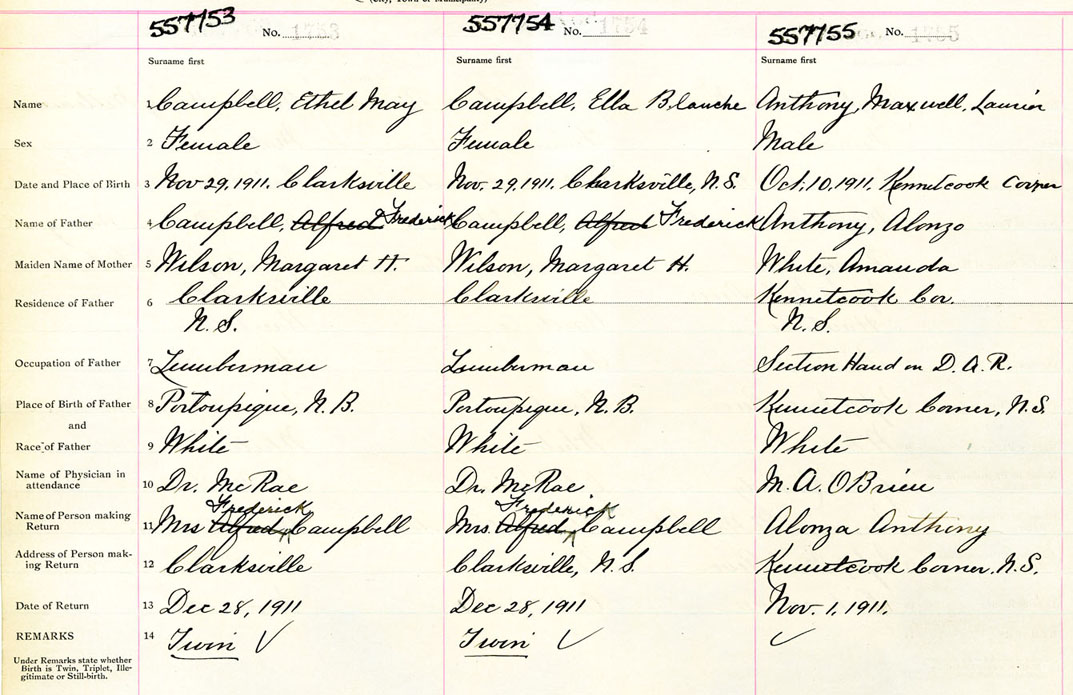 (City, Town or Municipality)
557753 No. 1753 557754 No. 1754 557755 No. 1755
Surname first Surname first Surname first
Name 1 Campbell, Ethel May Campbell, Ella Blanche Anthony, Maxwell, Laurier
Sex 2 Female Female Male
Date and Place of Birth 3 Nov 29, 1911. Clarksville Nov. 29, 1911. Clarksville, N.S. Oct. 10, 1911. Kennetcook Corner
Name of Father 4 Campbell, Alfred Frederick Campbell, Alfred Frederick Anthony, Alonzo
Maiden Name of Mother 5 Wilson, Margaret H. Wilson, Margaret H. White, Amanda
Residence of Father 6 Clarksville Clarksville Kennetcook Cor.
N.S. N.S.
Occupation of Father 7 Lumberman Lumberman Section Hand on D.A.R.
Place of Birth of Father 8 Portoupique, N.B. Portoupique, N.B. Kennetcook Corner, N.S.
and
Race of Father 9 White White White
Name of Physician in
attendance 10 Dr. McRae Dr. McRae M. A. OBrien
Frederick Frederick
Name of Person making
Return 11 Mrs Alfred Campbell Mrs. Alfred Campbell Alonza Anthony
Address of Person mak-
ing Return 12 Clarksville Clarksville, N.S. Kennetcook Corner. N.S.
Date of Return 13 Dec 28, 1911 Dec 28, 1911 Nov. 1, 1911.
REMARKS 14 Twin ✓ Twin ✓ ✓
Under Remarks state whether
Birth is Twin, Triplet, Ille-
gitimate or Still-birth.